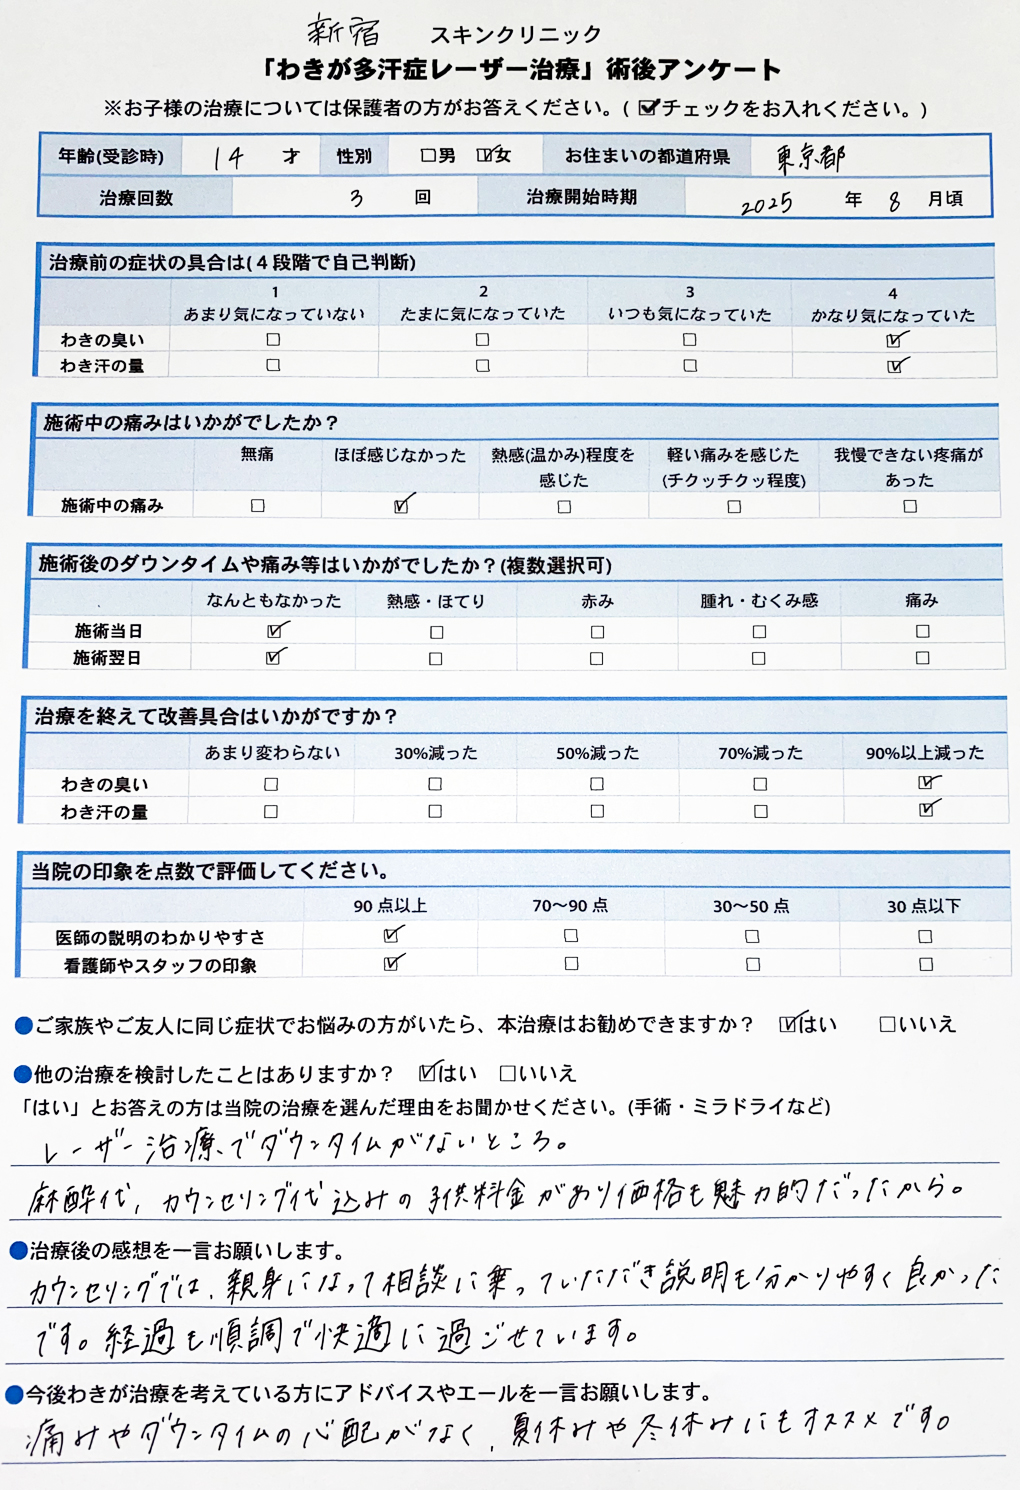 新宿 スキンクリニック
「わきが多汗症レーザー治療」術後アンケート
※お子様の治療については保護者の方がお答えください。( ☑チェックをお入れください。)
年齢(受診時) 14 才 性別 □男 ☑女 お住まいの都道府県 東京都
治療回数 3 回 治療開始時期 2025 年 8 月頃
治療前の症状の具合は(4段階で自己判断)
1 2 3 4
あまり気になっていない たまに気になっていた いつも気になっていた かなり気になっていた
わきの臭い □ □ □ ☑
わき汗の量 □ □ □ ☑
施術中の痛みはいかがでしたか?
無痛 ほぼ感じなかった 熱感(温かみ)程度を 軽い痛みを感じた 我慢できない疼痛が
感じた (チクッチクッ程度) あった
施術中の痛み □ ☑ □ □ □
施術後のダウンタイムや痛み等はいかがでしたか?(複数選択可)
なんともなかった 熱感・ほてり 赤み 腫れ・むくみ感 痛み
施術当日 ☑ □ □ □ □
施術翌日 ☑ □ □ □ □
治療を終えて改善具合はいかがですか?
あまり変わらない 30%減った 50%減った 70%減った 90%以上減った
わきの臭い □ □ □ □ ☑
わき汗の量 □ □ □ □ ☑
当院の印象を点数で評価してください。
90点以上 70〜90点 30〜50点 30点以下
医師の説明のわかりやすさ ☑ □ □ □
看護師やスタッフの印象 ☑ □ □ □
●ご家族やご友人に同じ症状でお悩みの方がいたら、本治療はお勧めできますか? ☑はい □いいえ
●他の治療を検討したことはありますか? ☑はい □いいえ
「はい」とお答えの方は当院の治療を選んだ理由をお聞かせください。(手術・ミラドライなど)
レーザー治療でダウンタイムがないところ。
麻酔代、カウンセリング代込みの子供料金があり価格も魅力的だったから。
●治療後の感想を一言お願いします。
カウンセリングでは、親身になって相談に乗っていただき説明も分かりやすく良かった
です。経過も順調で快適に過ごせています。
●今後わきが治療を考えている方にアドバイスやエールを一言お願いします。
痛みやダウンタイムの心配がなく、夏休みや冬休みにもオススメです。